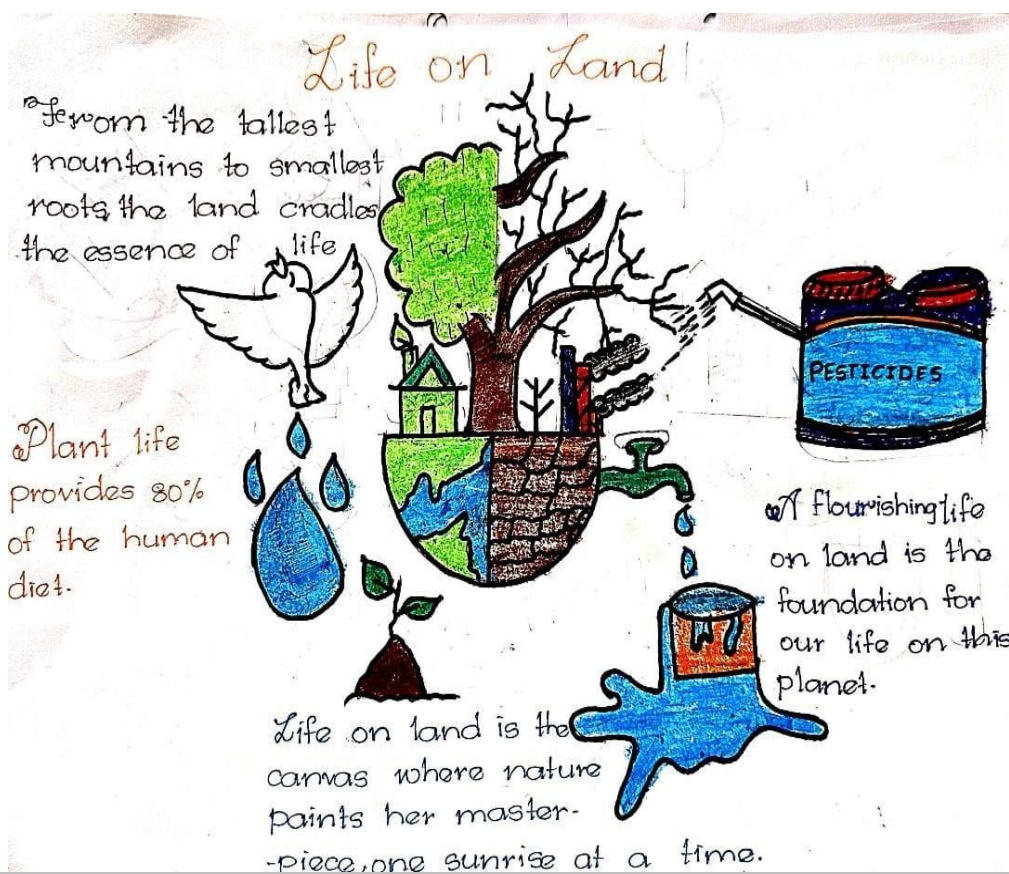 Life on Land
From the tallest
mountains to smallest
roots, the land cradles
the essence of life
PESTICIDES
Plant life
provides 80%
of the human
diet.
A flourishing life
on land is the
foundation for
our life on this
planet.
Life on land is the
canvas where nature
paints her master-
-piece, one sunrise at a time.